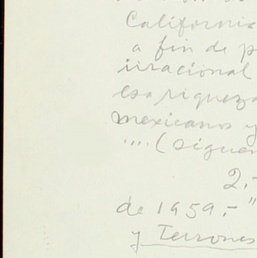 California
a fin de p
irracional
esa riqueza
mexicanos y
.... (siguen
2.-
de 1959.- "
y Terrones